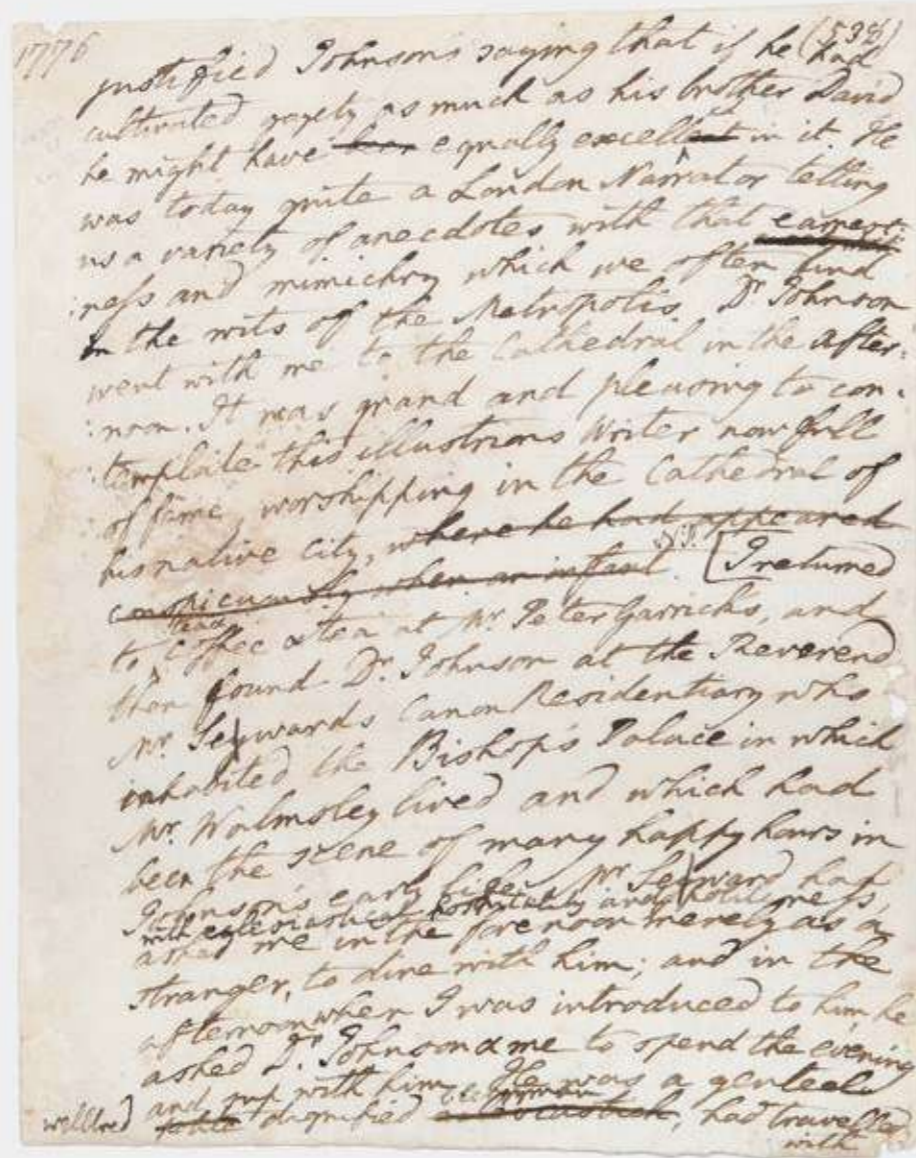 1776
(532)
justified Johnsons saying that if he had
cultivated gayety as much as his brother David
he might have been equally excellent in it. He
was today quite a London Narrator telling
us a variety of anecdotes with that earnest:
:ness and mimickry which we often find
in the wits of the Metropolis. Dr. Johnson
went with me to the Cathedral in the after:
:noon. It was grand and pleasing to con:
:template this illustrious Writer now full
of fame, worshipping in the Cathedral of
his native city, where he had appeared
conspicuously when an infant. [I returned
to Coffee & tea at Mr. Peter Garricks, and
then found Dr. Johnson at the Reverend
Mr. Sewards Canon Residentiary who
inhabited the Bishop's Palace in which
Mr. Walmsley lived and which had
been the scene of many happy hours in
Johnson's early life. Mr. Seward had
with eglesiastical hospitality and politeness,
asked me in the forenoon merely as a
stranger, to dine with him; and in the
afternoon when I was introduced to him, he
asked Dr. Johnson & me to spend the evening
and sup with him. He was a genteel
clergyman
wellbred polite dignified ecclesiastick, had travelled
with